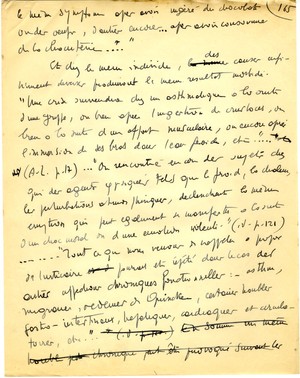 le même symptôme après avoir ingéré du chocolat 165
ou des œufs, d'autres encore... après avoir consommé
de la charcuterie..."
Et chez le même individu, des causes
diverses produiront le même résultat morbide.
"Une crise surviendra chez un asthmatique à la suite
d'une grippe, ou bien après l'ingestion de crustacés, ou
bien à la suite d'un effort musculaire, ou encore après
l'immersion de ses bras dans l'eau froide, etc..."
(A-L. p.12)... "On rencontre encore des sujets chez
qui des agents physiques tels que le froid, la chaleur,
les perturbations atmosphériques, déclenchent la même
éruption qui peut également se manifester à la suite
d'un choc moral ou d'une émotion violente." (p.121)
........ "Tout ce que nous venons de rappeler à propos
de l'urticaire pourrait être répété dans le cas des
autres affections chroniques fonctionnelles : asthme,
migraines, œdèmes de Quincke, certains troubles
gastro-intestinaux, hépatiques, cardiaques et circula-
toires, etc..." En somme un même
trouble chronique peut être provoqué suivant les